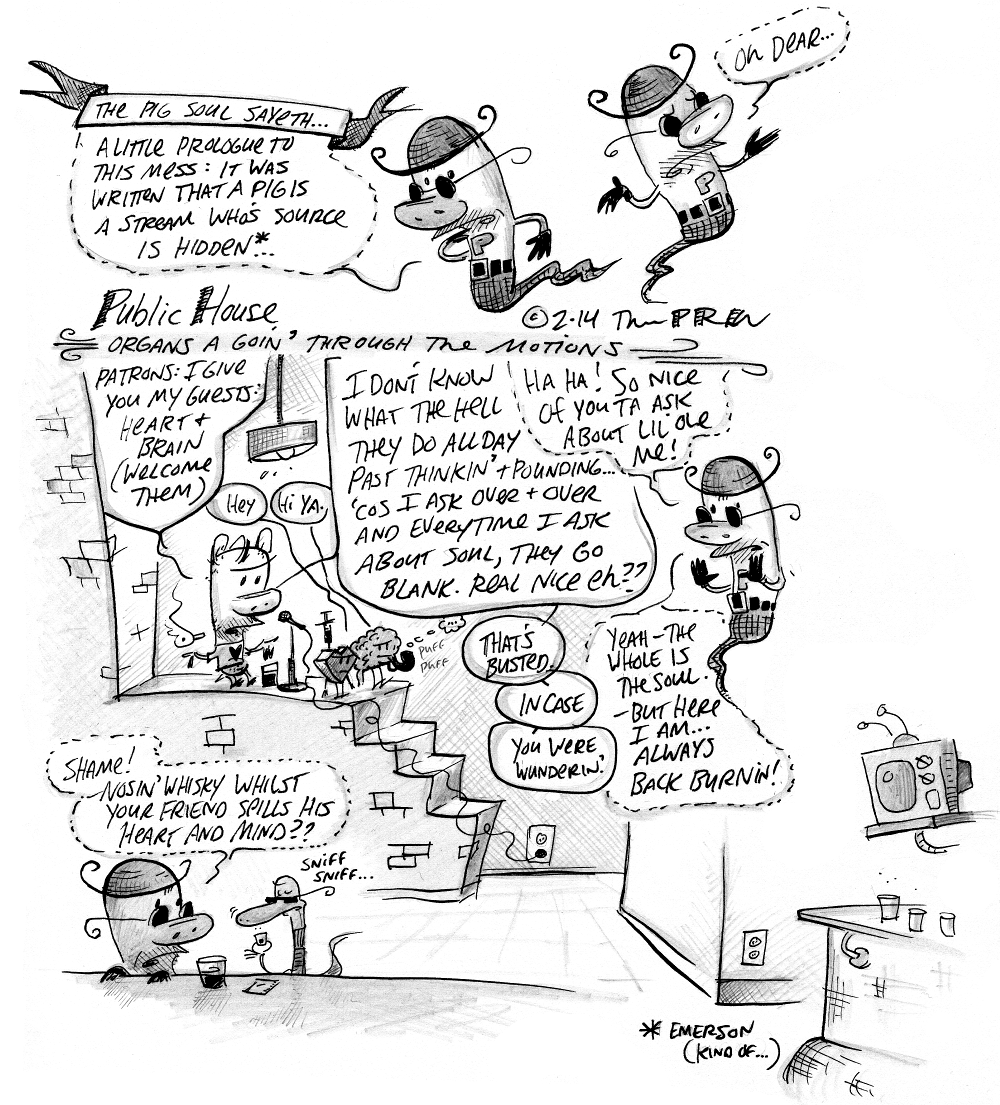 THE PIG SOUL SAYETH...
A LITTLE PROLOGUE TO
THIS MESS: IT WAS
WRITTEN THAT A PIG IS
A STREAM WHO'S SOURCE
IS HIDDEN*...
OH DEAR...
P
P
Public House
© 2·14
ORGANS A GOIN' THROUGH THE MOTIONS
PATRONS: I GIVE
YOU MY GUESTS:
HEART +
BRAIN
(WELCOME
THEM)
HEY
HI YA.
I DON'T KNOW
WHAT THE HELL
THEY DO ALL DAY
PAST THINKIN' + POUNDING...
'COS I ASK OVER + OVER
AND EVERYTIME I ASK
ABOUT SOUL, THEY GO
BLANK. REAL NICE EH??
HA HA! SO NICE
OF YOU TA ASK
ABOUT LIL OLE
ME!
PUFF
PUFF
THAT'S
BUSTED.
IN CASE
YOU WERE
WUNDERIN'.
YEAH - THE
WHOLE IS
THE SOUL.
- BUT HERE
I AM...
ALWAYS
BACK BURNIN'!
SHAME!
NOSIN' WHISKY WHILST
YOUR FRIEND SPILLS HIS
HEART AND MIND??
SNIFF
SNIFF...
* EMERSON
(KIND OF...)